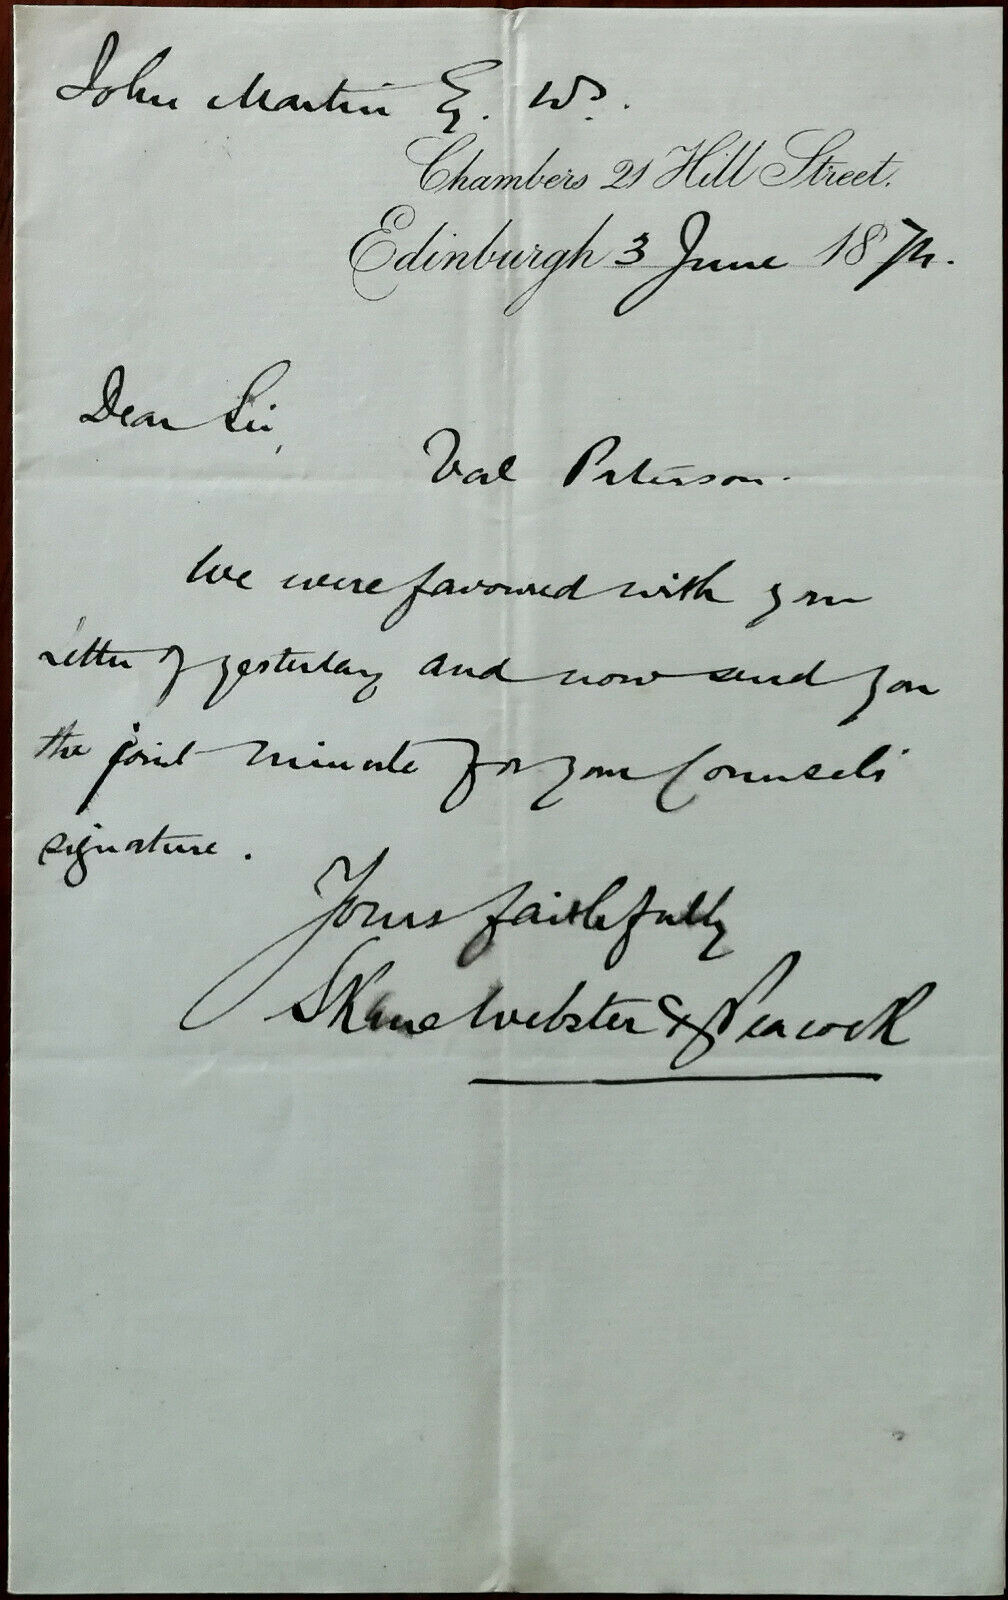 John Martin Esq. W.S.
Chambers 21 Hill Street.
Edinburgh 3 June 1874.
Dear Sir,
Val Paterson.
We were favoured with your
letter of yesterday and now send you
the joint minute for your Counsel's
signature.
Yours faithfully
Skene Webster & Peacock